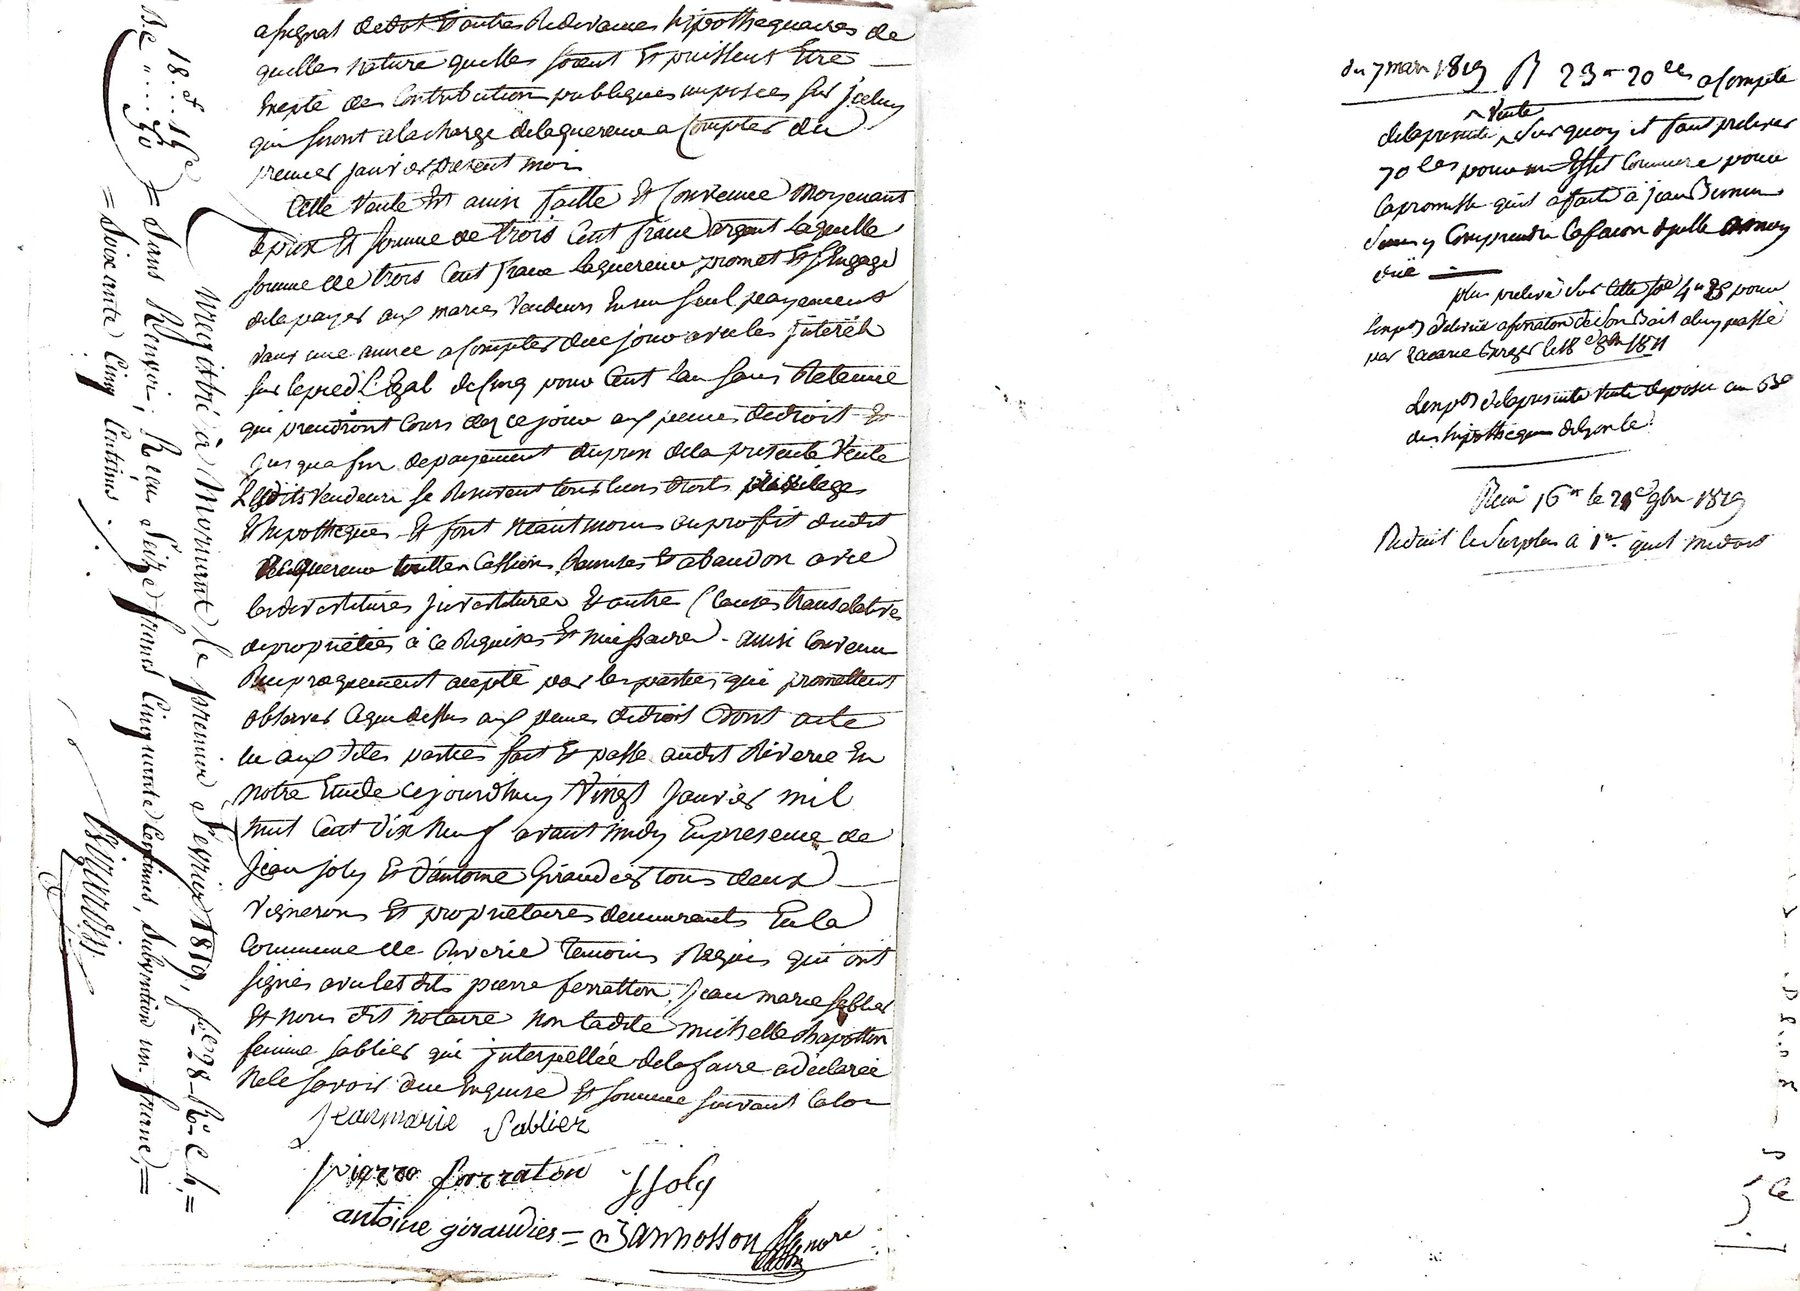 assignat de dot et autres Redevances hipothequaires de
quelles nature quelles soient et puissent Etre
Excepté des Contributions publiques imposées sur Jceluy
qui seront a la charge de laquereur a Compter du
premier janvier present mois
Cette Vente Est ainsi faitte Et Convenue Moyenant
le prix Et somme de trois Cent franc argent laquelle
somme de trois Cent franc laquereur promet Et sengage
de la payer aux maries Vendeurs En un seul payement
dans une année a Compter de ce jour avec les jnterêts
sur le pied Légal de cinq pour Cent lan sans Retenue
qui prendront Cours dez ce jour aux peines de droit Et
jusqua fin de payement du prix de la presente Vente
Lesdits Vendeurs se Reservent tous leurs droits privileges
Et hipotheques Et font Néantmoins au profit dudit
acquereur touttes Cessions Remises Et abandon avec
les devestitures jnvestitures Et autre Clauses translatives
de propriétés à ce Requises Et nécessaires. ainsi Convenu
Reciproquement accepté par les parties qui promettent
observer ce que dessus aux peines de droit Dont acte
lu aux dites parties fait Et passé audit Riverie En
notre Etude Cejourdhuy Vingt Janvier mil
huit Cent dix Neuf avant midy En presence de
Jean joly Et d'antoine Giraudier tous deux
Vignerons Et propriétaires demeurants En la
Commune de Riverie temoins Requis qui ont
signés avec lesdits pierre ferratton, Jean marie sablier
Et Nous dit Notaire Non ladite michelle chapotton
femme sablier qui jnterpellée de la faire a déclarée
Ne le savoir due Enquise Et somme suivant la loi
jeanmarie Sablier
pierre ferraton JJoly
antoine giraudier = Jannosson Nore
Enregistré à Mornant le premier Février 1819, fo 98 Ro C. 4, =
18. et 19e
= Sans Renvoi; Reçu Seize francs Cinquante Centimes, Subvention un franc,=
= Soixante Cinq Centimes.
du 7 mars 1819 R 23 20 a Compte
de la presente Vente Sur quoy il faut prelever
70 pour un Effet Comme pour
la promesse quil a faite à jean
Sans y Comprendre la facon
plus prelevé sur cette 4 85 pour
par Zacarie le 18 1811
de la presente Vente deposée au
des hipotheques de Lyon le
Reçu 16 le 21 9bre 1819
Reduit le Surplus à 1 quil me doit